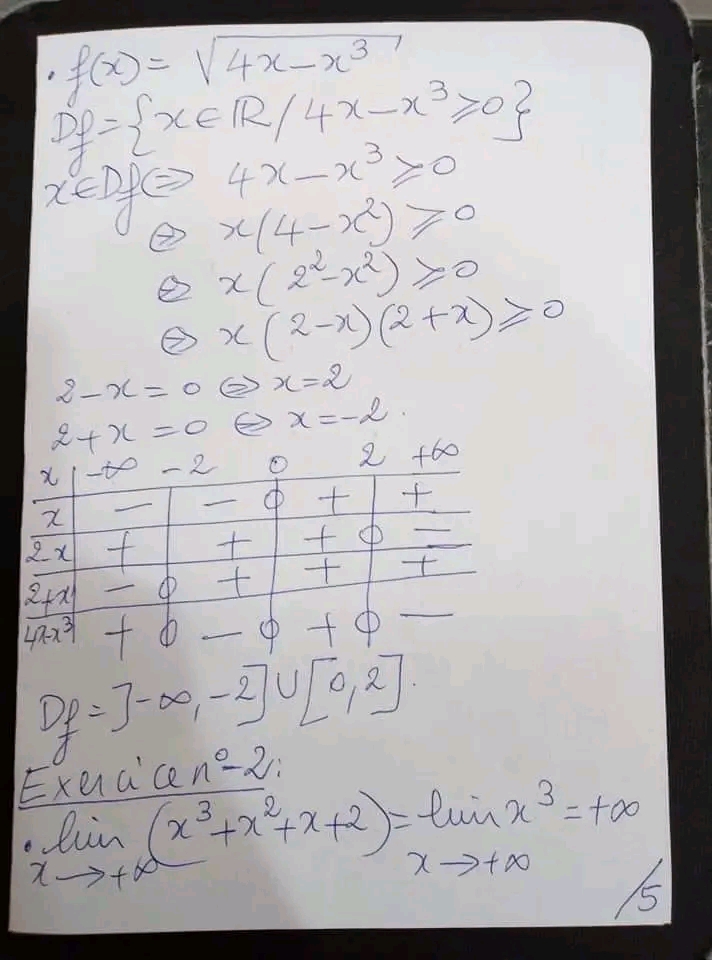 . f(x) = √(4x-x³)
Df = {x∈ℝ / 4x-x³ ≥ 0}
x∈Df ⇔ 4x-x³ ≥ 0
⇔ x(4-x²) ≥ 0
⇔ x(2²-x²) ≥ 0
⇔ x(2-x)(2+x) ≥ 0
2-x = 0 ⇔ x=2
2+x = 0 ⇔ x=-2.
x | -∞ -2 0 2 +∞
x | - | - 0 + | +
2-x | + | + | + 0 -
2+x | - 0 + | + | +
4x-x³ | + 0 - 0 + 0 -
Df = ]-∞,-2]∪[0,2].
Exercice n°-2:
. lim (x³+x²+x+2) = lim x³ = +∞
x→+∞ x→+∞
/5